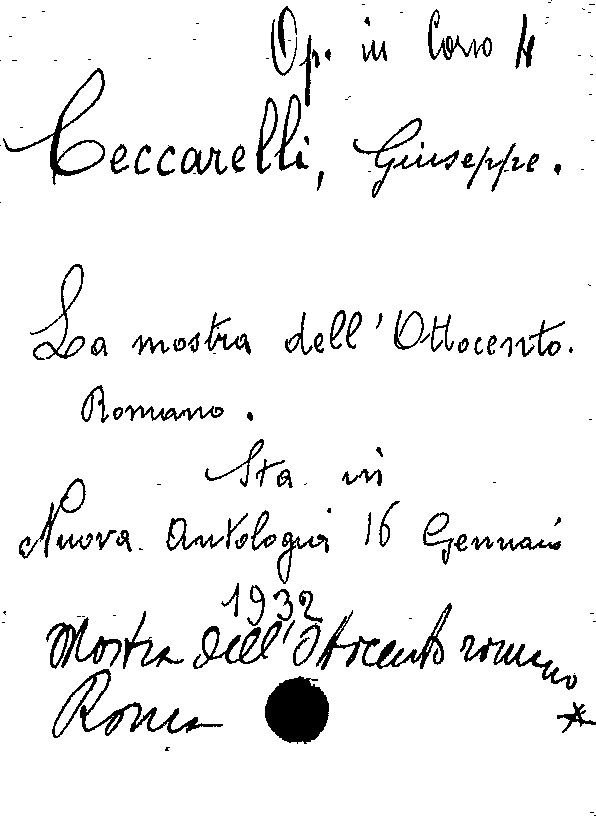 Op. in Corso 4
Ceccarelli, Giuseppe.
La mostra dell'Ottocento.
Romano.
Sta in
Nuova Antologia 16 Gennaio
1932
Mostra dell'Ottocento romano
Roma *